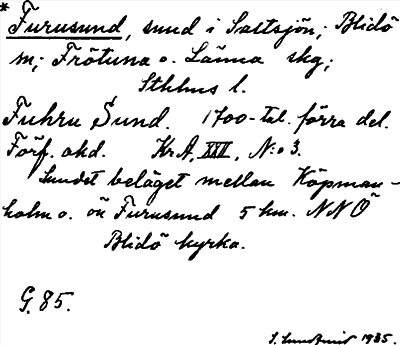 * Furusund, sund i Saltsjön; Blidö
m; Frötuna o. Länna skg;
Sthlms l.
Fuhru Sund. 1700-tal. förra del.
Förf. okd. KrA, XXII, N:o 3.
Sundet beläget mellan Köpman-
holm o. ön Furusund 5 km. NNÖ
Blidö kyrka.
G. 85.
1935.